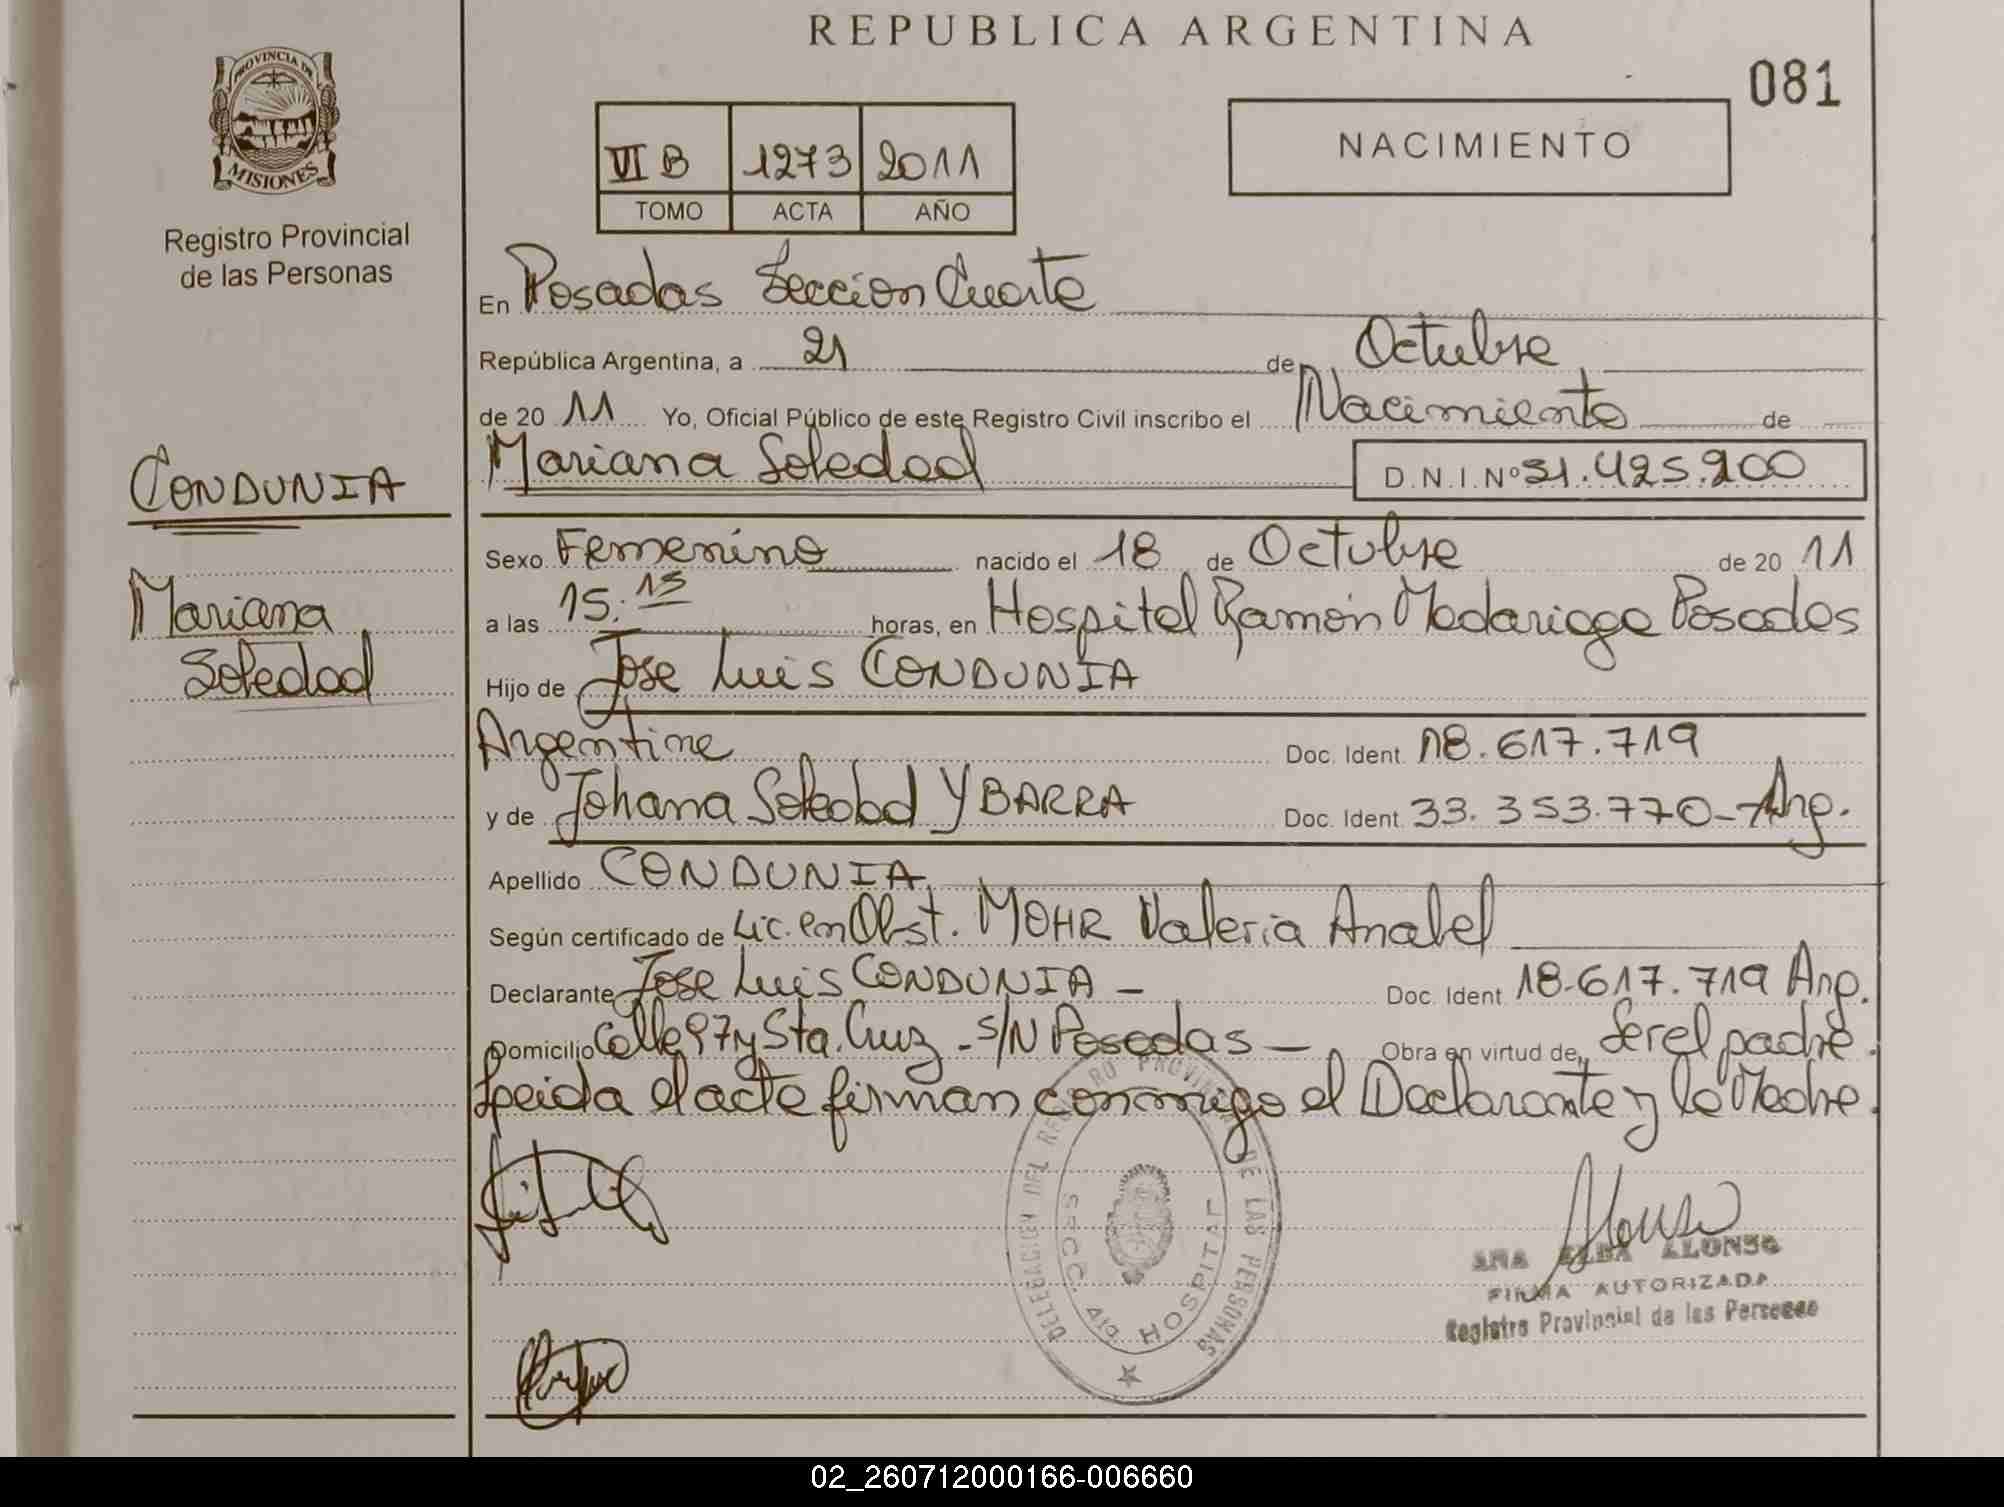 REPUBLICA ARGENTINA
081
PROVINCIA DE
MISIONES
Registro Provincial
de las Personas
VI B 1273 2011
TOMO ACTA AÑO
NACIMIENTO
En Posadas Seccion Cuarta
República Argentina, a 21 de Octubre
de 2011 Yo, Oficial Público de este Registro Civil inscribo el Nacimiento de
Mariana Soledad D.N.I.Nº 51.425.200
CONDUNIA
Mariana
Soledad
Sexo Femenino nacido el 18 de Octubre de 2011
a las 15:15 horas, en Hospital Ramón Madariaga Posadas
Hijo de Jose Luis CONDUNIA
Argentina Doc. Ident. 18.617.719
y de Johana Soledad YBARRA Doc. Ident. 33.353.770 - Arg.
Apellido CONDUNIA
Según certificado de Lic. en Obst. MOHR Valeria Anabel
Declarante Jose Luis CONDUNIA - Doc. Ident. 18.617.719 Arg.
Domicilio Calle 97 y Sta. Cruz - S/N Posadas - Obra en virtud de Ser el padre.
Leida el acta firman conmigo el Declarante y la Madre.
DELEGACION DEL REGISTRO PROVINCIAL DE LAS PERSONAS
SECC. 4ta HOSPITAL
ANA ELBA ALONSO
FIRMA AUTORIZADA
Registro Provincial de las Personas
02_260712000166-006660